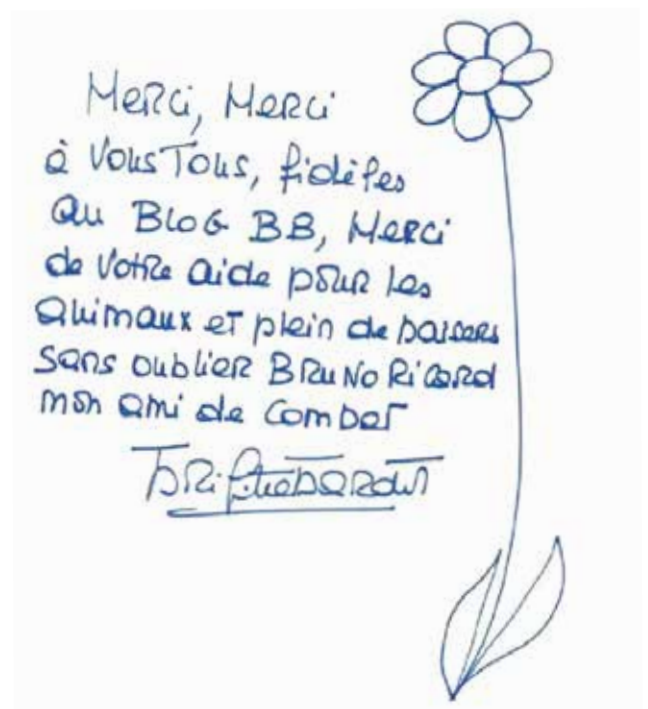 Merci, Merci
à Vous Tous, fidèles
au Blog BB, Merci
de Votre aide pour les
animaux et plein de baisers
sans oublier Bruno Ricard
mon ami de combat
Brigitte Bardot